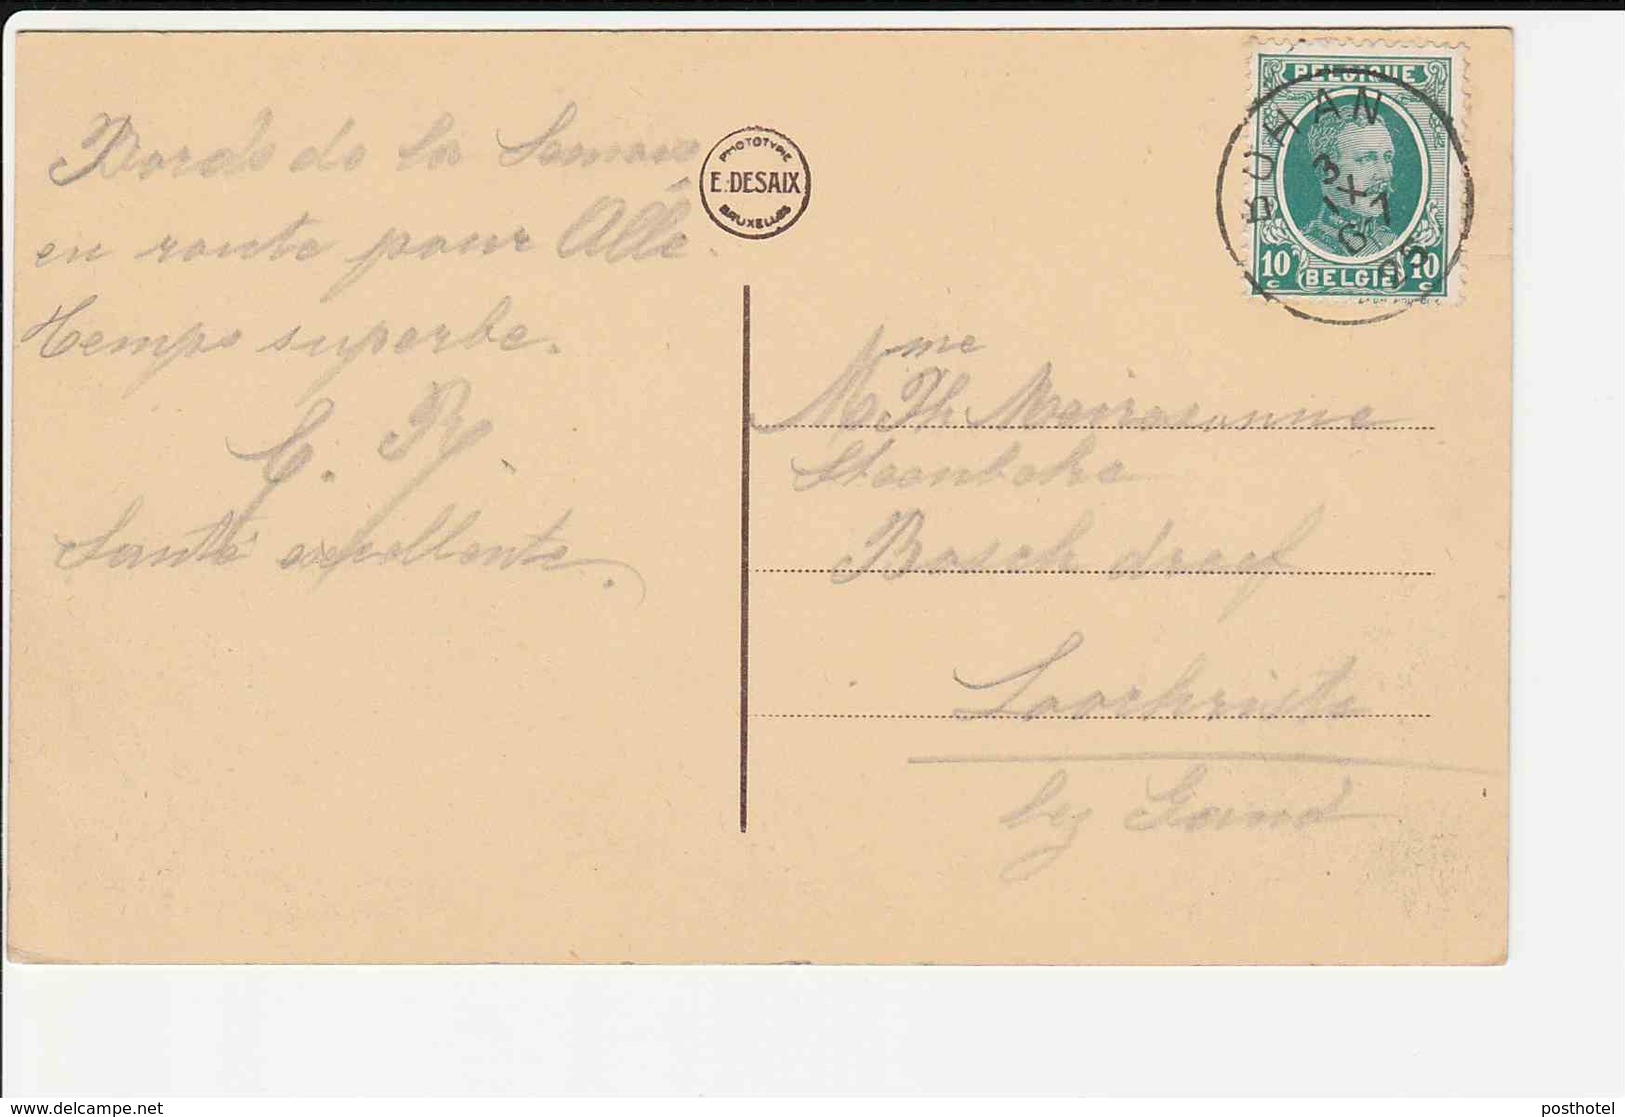 Bords de la Semois
en route pour Allé.
Temps superbe.
C. R.
Santé excellente.
PHOTOTYPE
E. DESAIX
BRUXELLES
BELGIQUE
10 c
BELGIË
10 c
BOHAN
3
IX
6-7
25
Mme Th
Steenbeke
Bosch dreef
Loochristi
by Gand
www.delcampe.net
posthotel